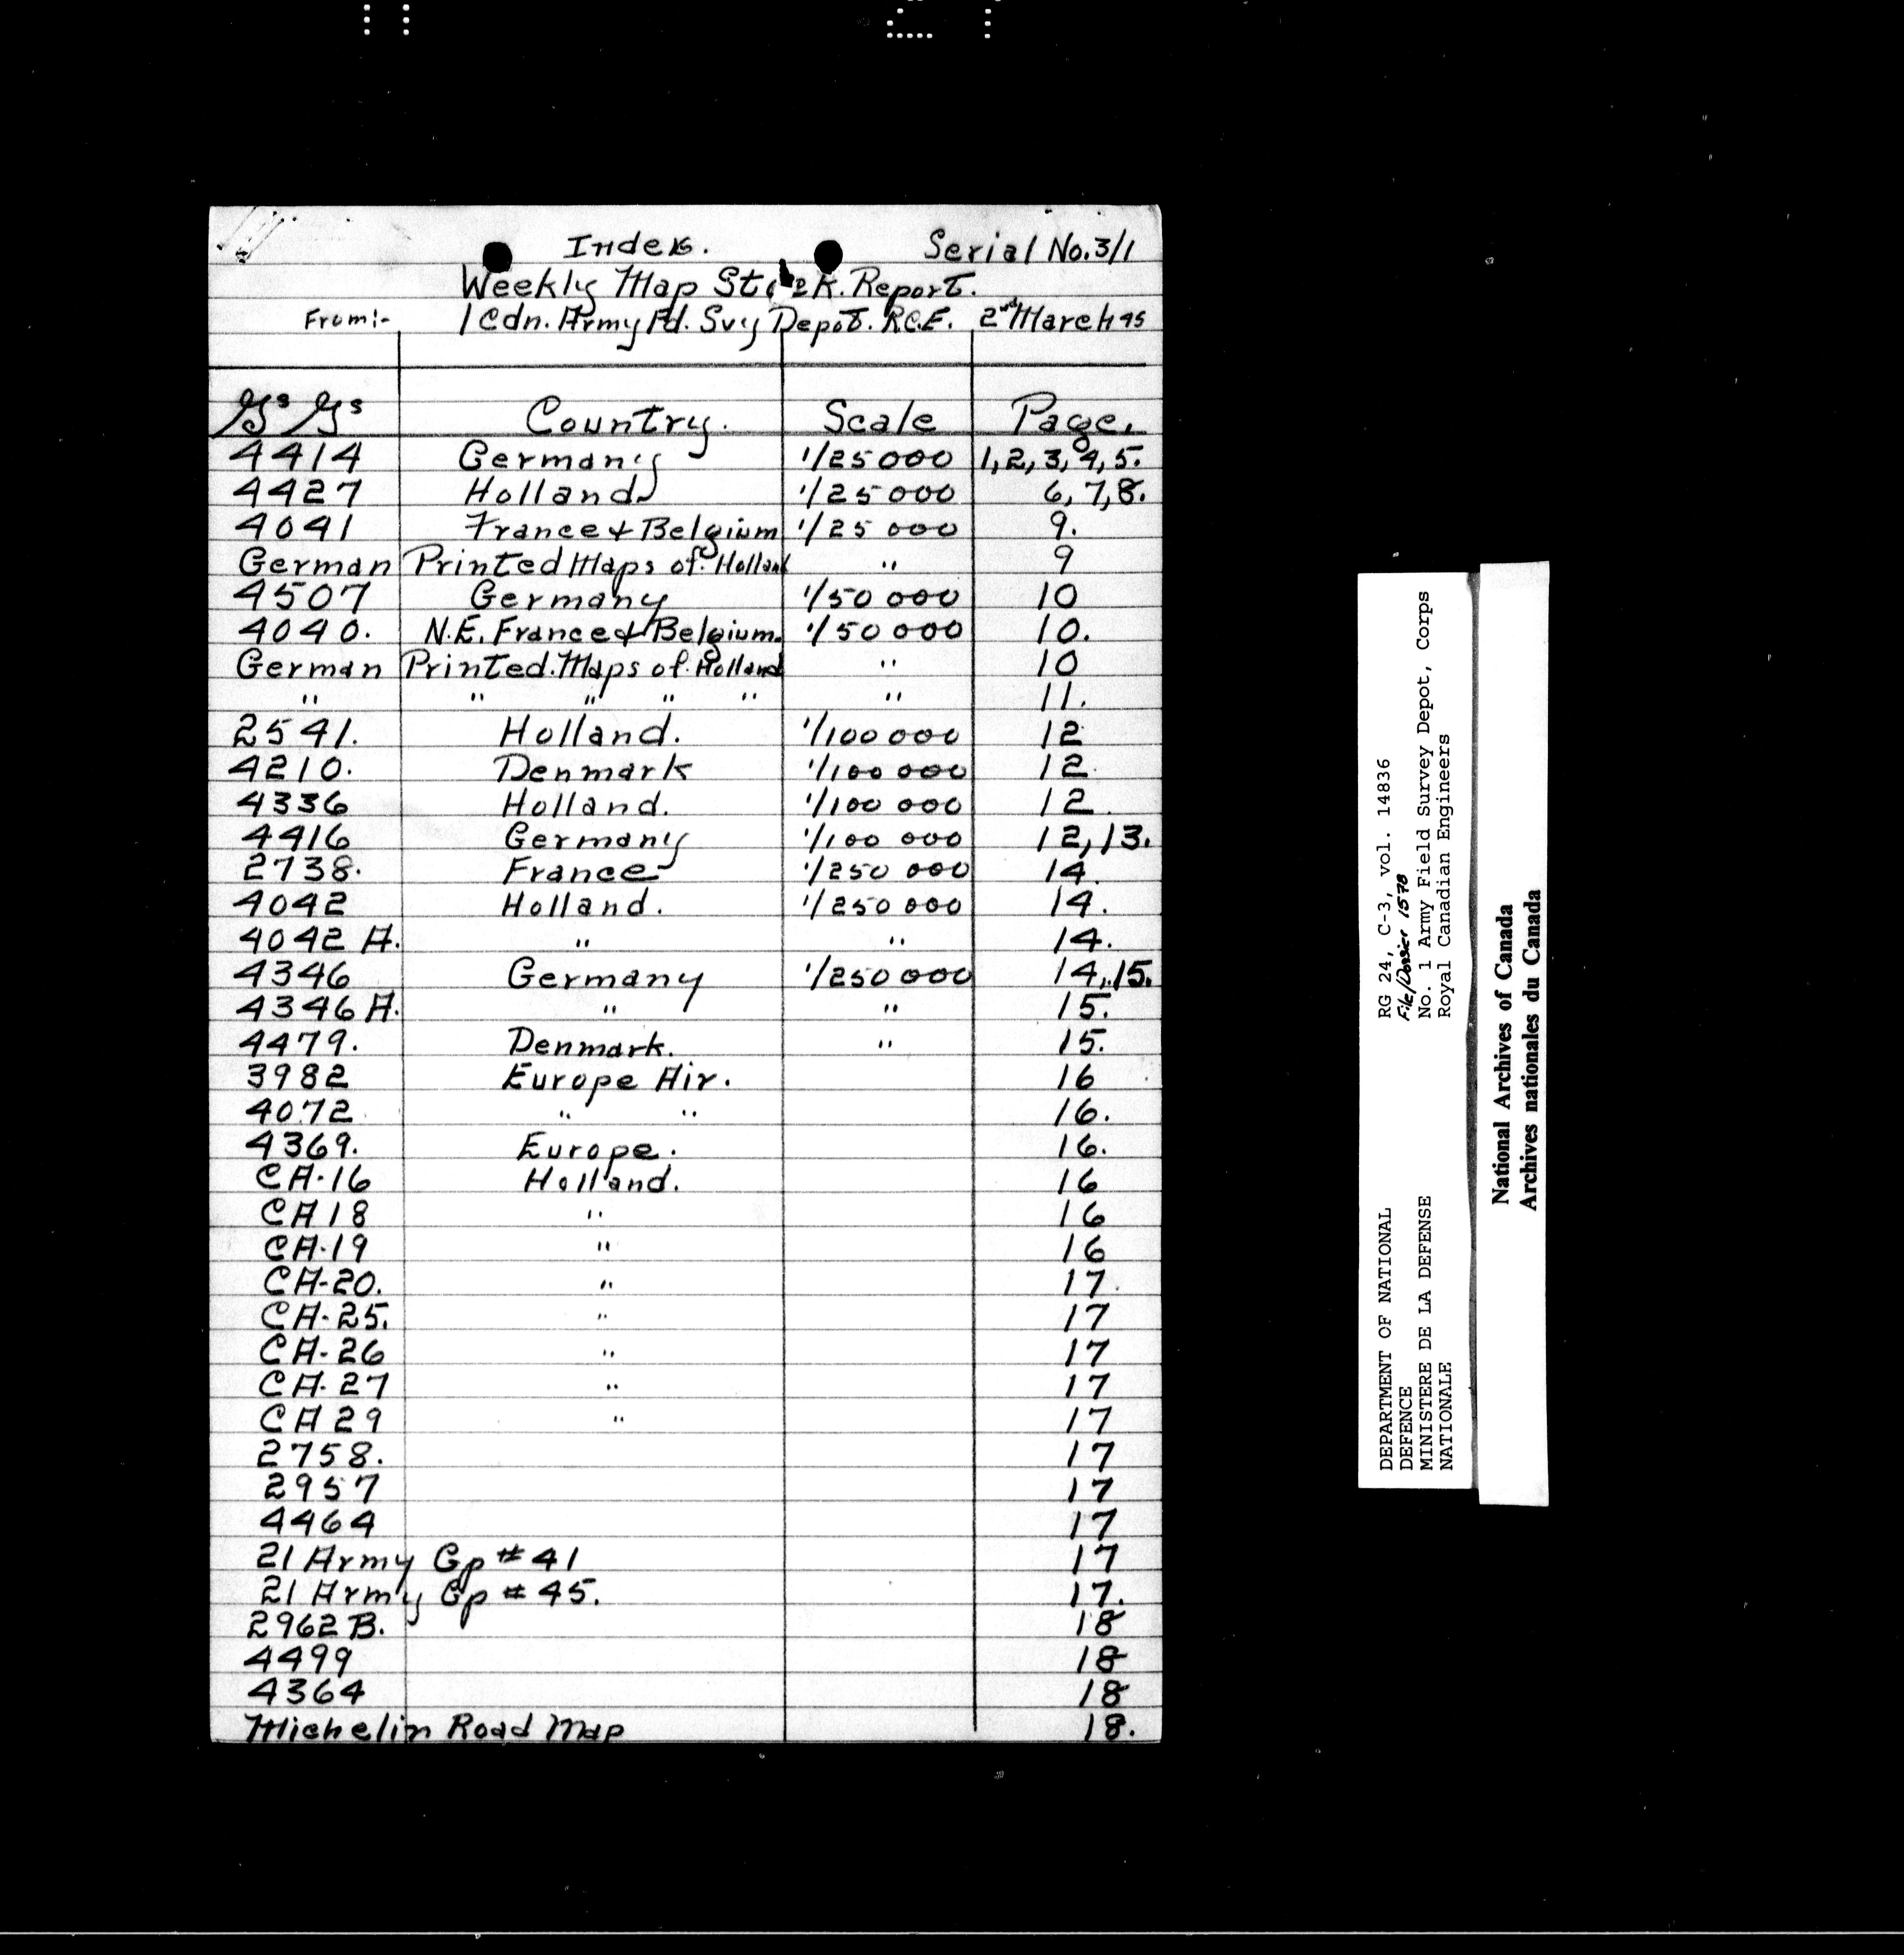 Index. Serial No. 3/1
Weekly Map Stock. Report.
From:- 1 Cdn. Army Fd. Svy Depot. R.C.E. 2nd March 45
GsGs Country. Scale Page.
4414 Germany 1/25000 1,2,3,4,5.
4427 Holland 1/25000 6,7,8.
4041 France & Belgium 1/25000 9.
German Printed Maps of. Holland " 9
4507 Germany 1/50000 10
4040. N.E. France & Belgium. 1/50000 10.
German Printed. Maps of. Holland " 10
" " " " " " 11.
2541. Holland. 1/100000 12
4210. Denmark 1/100000 12.
4336 Holland. 1/100000 12
4416 Germany 1/100000 12,13.
2738. France 1/250000 14.
4042 Holland. 1/250000 14.
4042 A. " " 14.
4346 Germany 1/250000 14,15.
4346 A. " " 15.
4479. Denmark. " 15.
3982 Europe Air. 16
4072 " " 16.
4369. Europe. 16.
CA-16 Holland. 16
CA 18 " 16
CA-19 " 16
CA-20. " 17.
CA-25. " 17
CA-26 " 17
CA-27 " 17
CA 29 " 17
2758. 17
2957 17
4464 17
21 Army Gp # 41 17
21 Army Gp # 45. 17.
2962 B. 18
4499 18
4364 18
Michelin Road Map 18.
DEPARTMENT OF NATIONAL
DEFENCE
MINISTERE DE LA DEFENSE
NATIONALE
RG 24, C-3, vol. 14836
File/Dossier 1578
No. 1 Army Field Survey Depot, Corps
Royal Canadian Engineers
National Archives of Canada
Archives nationales du Canada